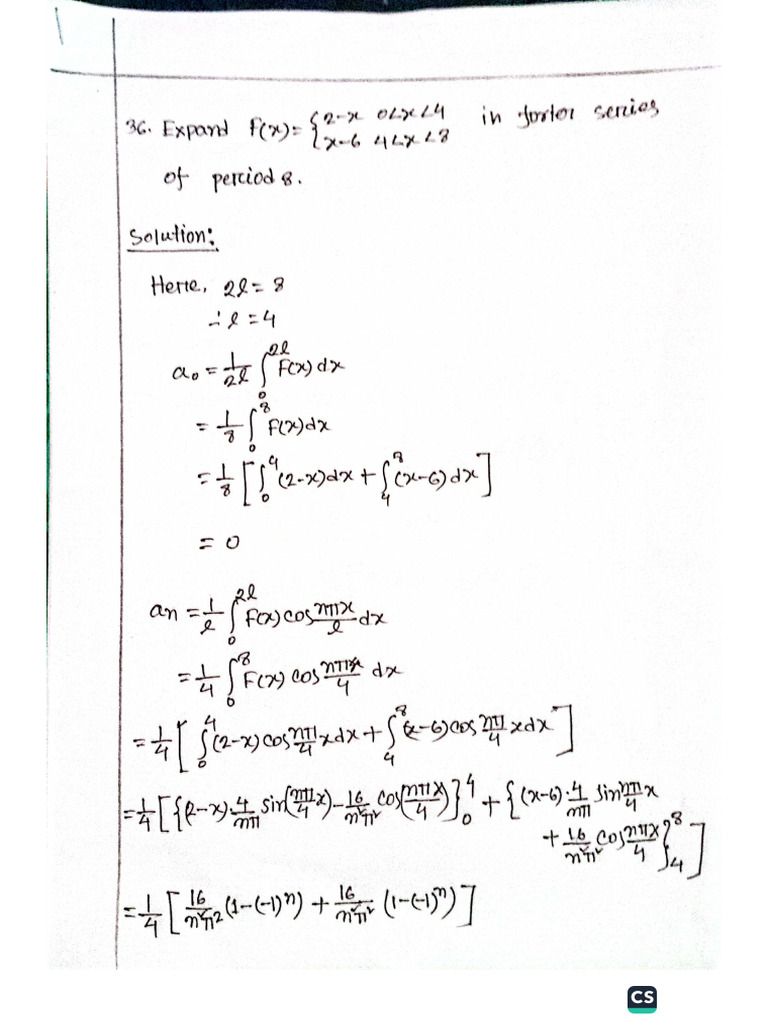 36. Expand F(x)= {2-x 0<x<4 in series
x-6 4<x<8
of perciod 8.
Solution:
Here, 2l = 8
∴ l = 4
a₀ = 1/2l ∫₀^2l F(x) dx
= 1/8 ∫₀^8 F(x) dx
= 1/8 [∫₀^4 (2-x)dx + ∫₄^8 (x-6) dx]
= 0
an = 1/l ∫₀^2l F(x) cos nπx/l dx
= 1/4 ∫₀^8 F(x) cos nπx/4 dx
= 1/4 [∫₀^4 (2-x) cos nπ/4 x dx + ∫₄^8 (x-6) cos nπ/4 x dx]
= 1/4 [{(2-x)·4/nπ sin(nπ/4 x) - 16/n²π² cos(nπx/4)}₀^4 + {(x-6)·4/nπ sin nπ/4 x
+ 16/n²π² cos nπx/4}₄^8]
= 1/4 [16/n²π² (1-(-1)^n) + 16/n²π² (1-(-1)^n)]
CS